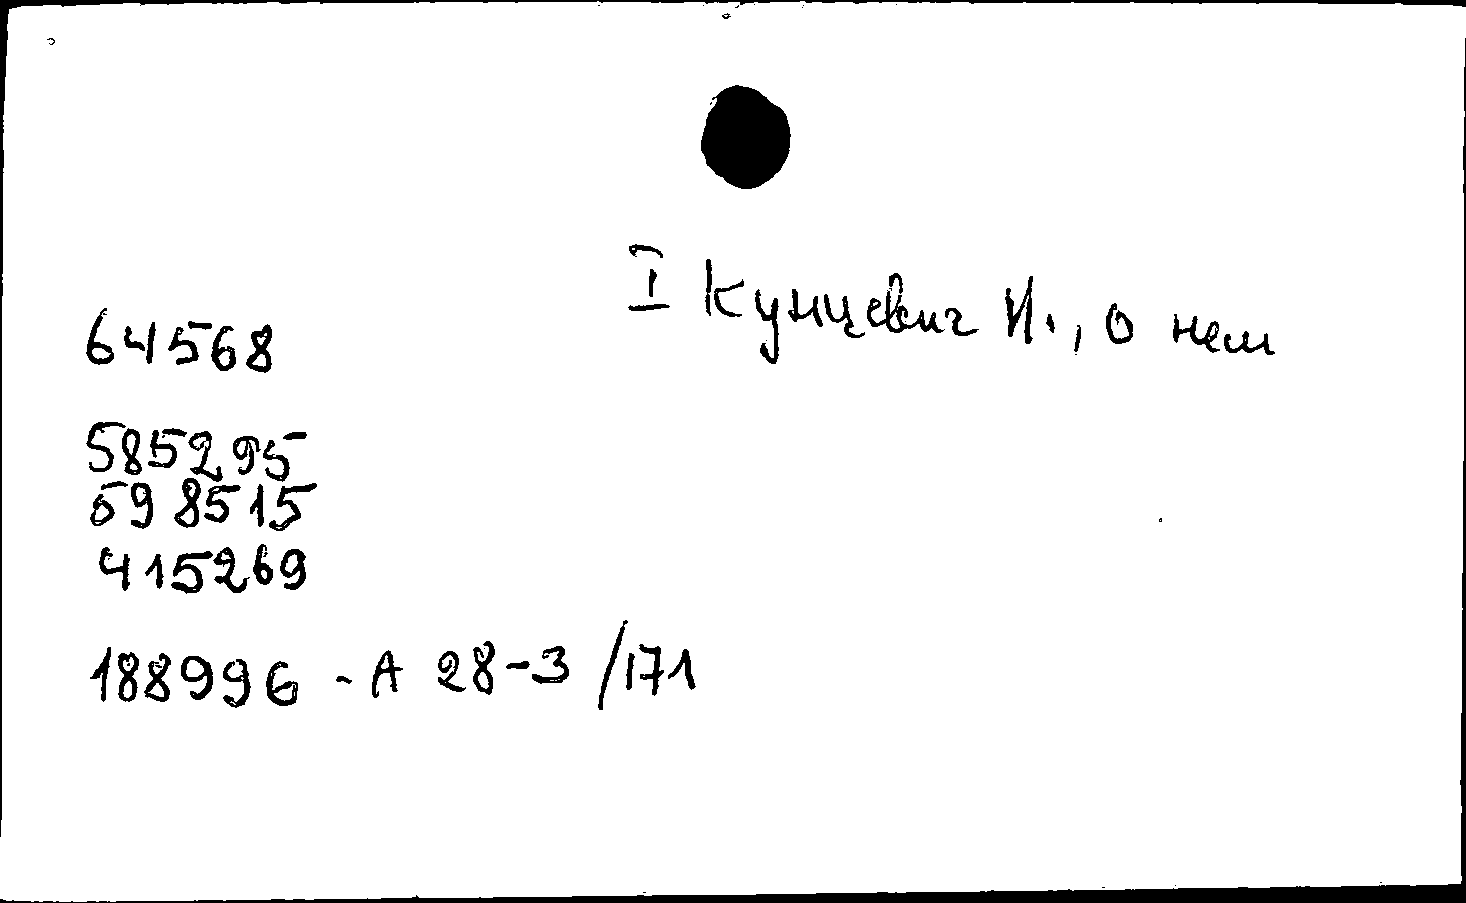 I Кунцевич И., о нем
64568
585295
598515
415269
188996 - А 28-3 /171